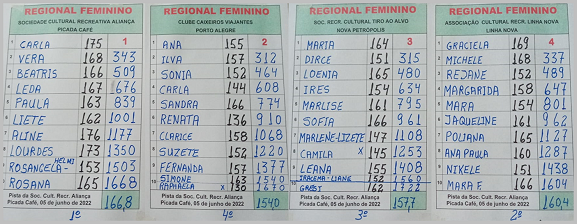 REGIONAL FEMININO
SOCIEDADE CULTURAL RECREATIVA ALIANÇA
PICADA CAFÉ
1 CARLA 175 1
2 VERA 168 343
3 BEATRIS 166 509
4 LEDA 167 676
5 PAULA 163 839
6 LIETE 162 1001
7 ALINE 176 1177
8 LOURDES 173 1350
9 ROSANCELA-HELMI 153 1503
10 ROSANA 165 1668
Pista da Soc. Cult. Recr. Aliança
Picada Café, 05 de junho de 2022 166,8
1º
REGIONAL FEMININO
CLUBE CAIXEIROS VIAJANTES
PORTO ALEGRE
1 ANA 155 2
2 ILVA 157 312
3 SONIA 152 464
4 CARLA 144 608
5 SANDRA 166 774
6 RENATA 136 910
7 CLARICE 158 1068
8 SUZETE 152 1220
9 FERNANDA 157 1377
10 SIMONE 163 1540
RAFAELA X 130 1670
Pista da Soc. Cult. Recr. Aliança
Picada Café, 05 de junho de 2022 1540
4º
REGIONAL FEMININO
SOC. RECR. CULTURAL TIRO AO ALVO
NOVA PETRÓPOLIS
1 MARIA 164 3
2 DIRCE 151 315
3 LOENIA 165 480
4 IRES 154 634
5 MARLISE 161 795
6 SOFIA 166 961
7 MARLENE-LIZETE 147 1108
8 CAMILA X 145 1253
9 LEANA 155 1408
10 IRACEMA-LIANE 152 1560
162 1722
Pista da Soc. Cult. Recr. Aliança
Picada Café, 05 de junho de 2022 157,7
3º
REGIONAL FEMININO
ASSOCIAÇÃO CULTURAL RECR. LINHA NOVA
LINHA NOVA
1 GRACIELA 169 4
2 MICHELE 168 337
3 REJANE 152 489
4 MARGARIDA 158 647
5 MARA 154 801
6 JAQUELINE 161 962
7 POLIANA 165 1127
8 ANA PAULA 160 1287
9 NIKELE 151 1438
10 MARA F. 166 1604
Pista da Soc. Cult. Recr. Aliança
Picada Café, 05 de junho de 2022 160,4
2º